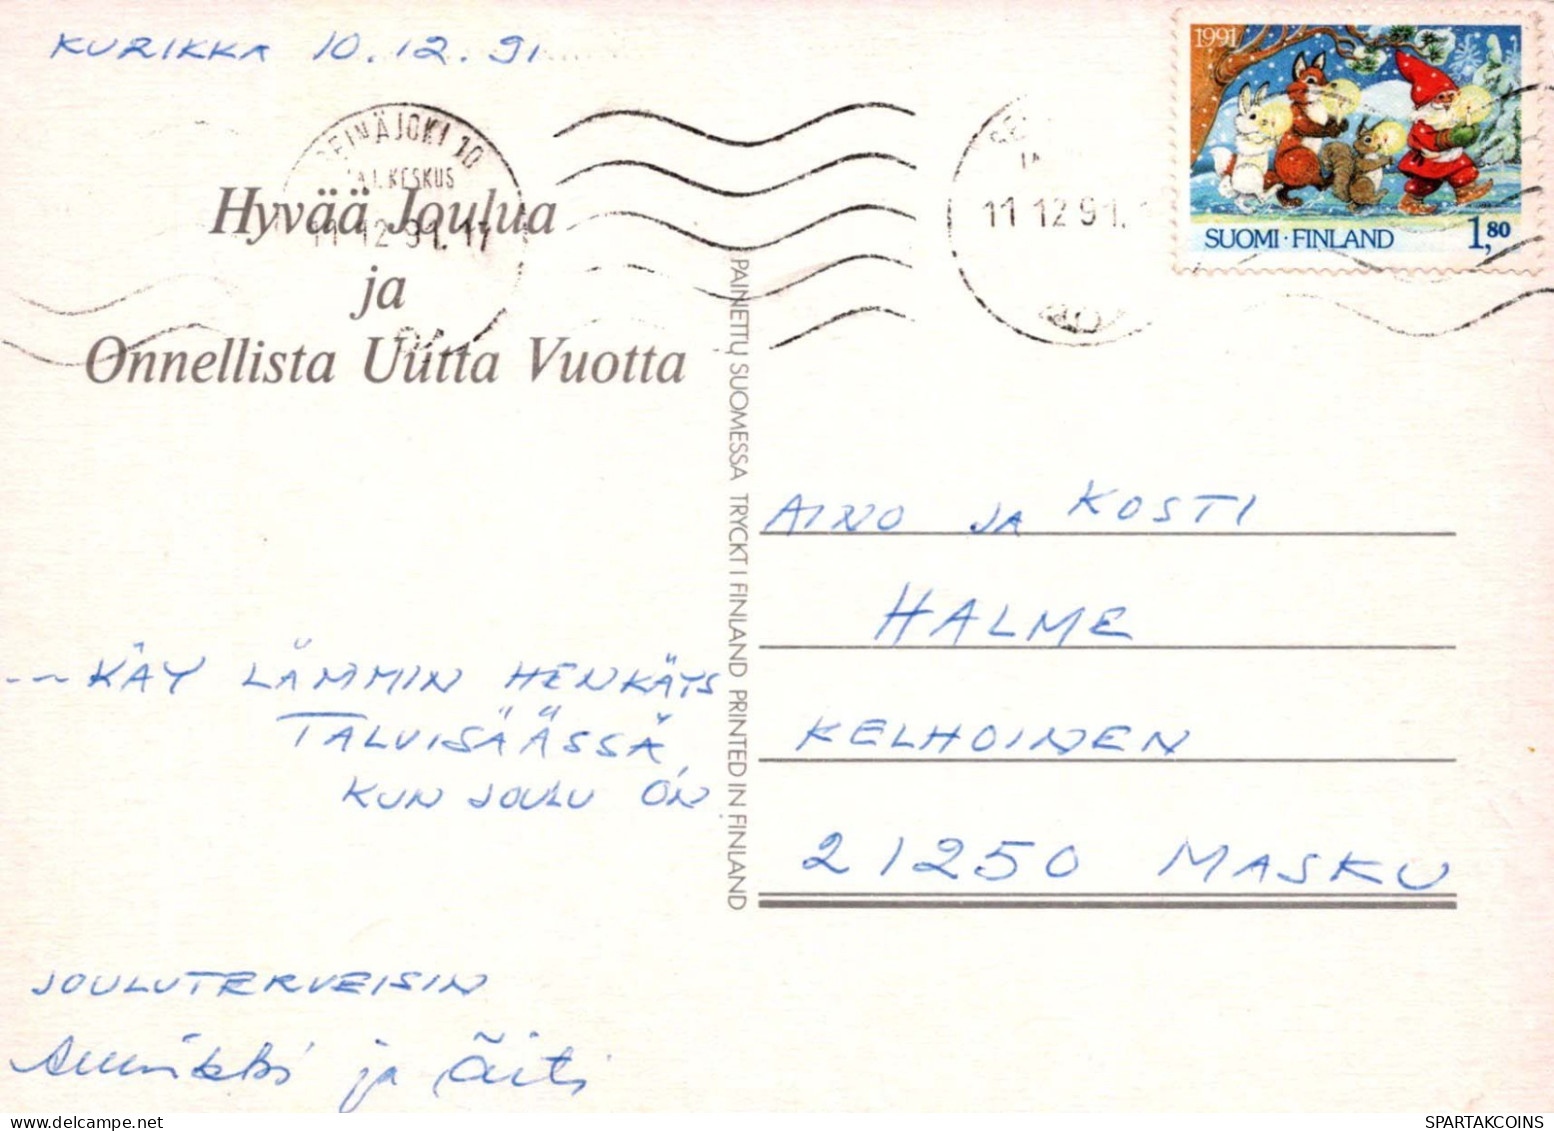 KURIKKA 10.12.91
1991
SUOMI·FINLAND 1,80
SEINÄJOKI 10
KESKUS
11 12 91. 17
11 12 91.
Hyvää Joulua
ja
Onnellista Uutta Vuotta
PAINETTU SUOMESSA TRYCKT I FINLAND PRINTED IN FINLAND
AINO JA KOSTI
HALME
KELHOINEN
21250 MASKU
--~ KÄY LÄMMIN HENKÄYS
TALVISÄÄSSÄ,
KUN JOULU ON
JOULUTERVEISIN
Annikki ja Äiti
SPARTAKCOINS